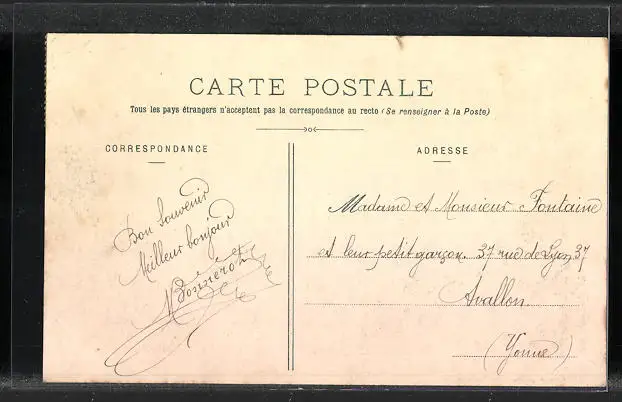 CARTE POSTALE
Tous les pays étrangers n'acceptent pas la correspondance au recto (Se renseigner à la Poste)
CORRESPONDANCE
Bon Souvenir
Meilleur bonjour
ADRESSE
Madame et Monsieur Fontaine
et leur petit garçon. 37 rue de Lyon 37
Avallon
(Yonne)